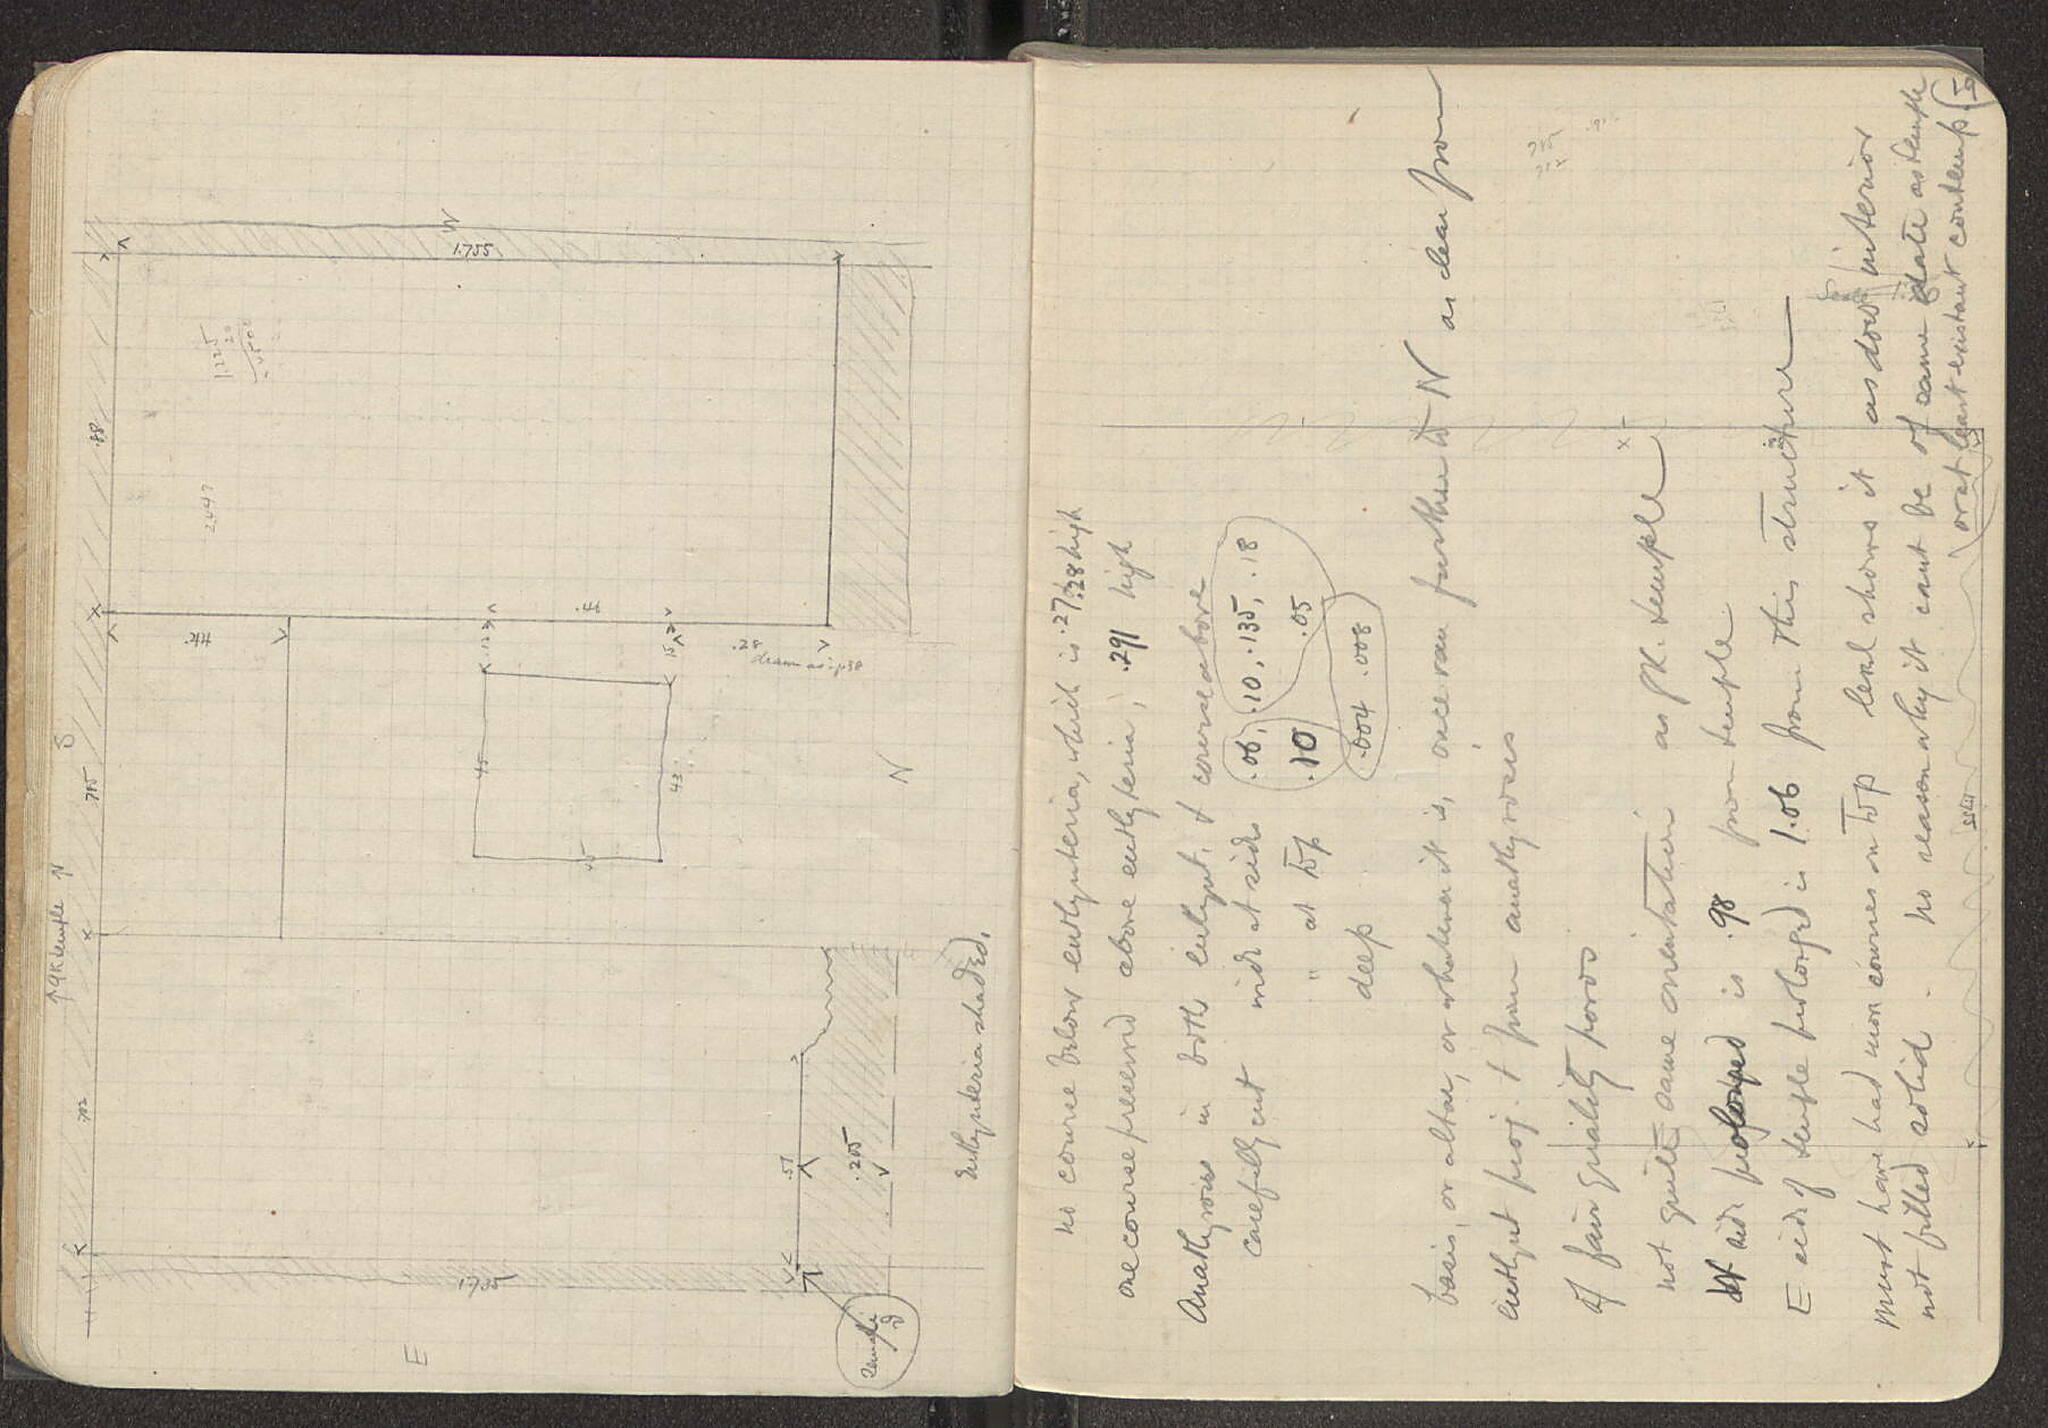 ↑ gk temple N
S
.702
.715
.88
1.755
N
1.225
20
2.047
.44
.12
.46
.15
.28
drawn as in p 38
.45
.43
.45
N
E
1.755
.57
.205
Euthynteria shaded.
no course below euthynteria, which is .27, .28 high
one course preserved above euthynteria, .291 high
Anathyrosis in both euthynt. & course above
carefully cut wide at sides .06, .10, .135, .18
" at top .10 .05
deep .004 .008
basis, or altar, or whatever it is, once ran further to N as clear from
euthynt proj. & from anathyrosis
of fair quality poros
not quite same orientation as gk. temple
side prolonged is .98 from temple
E side of temple prolonged is 1.06 from this structure
must have had more courses on top level shows it as does interior
not filled solid. no reason why it cant be of same date as temple
or at least existant contemp